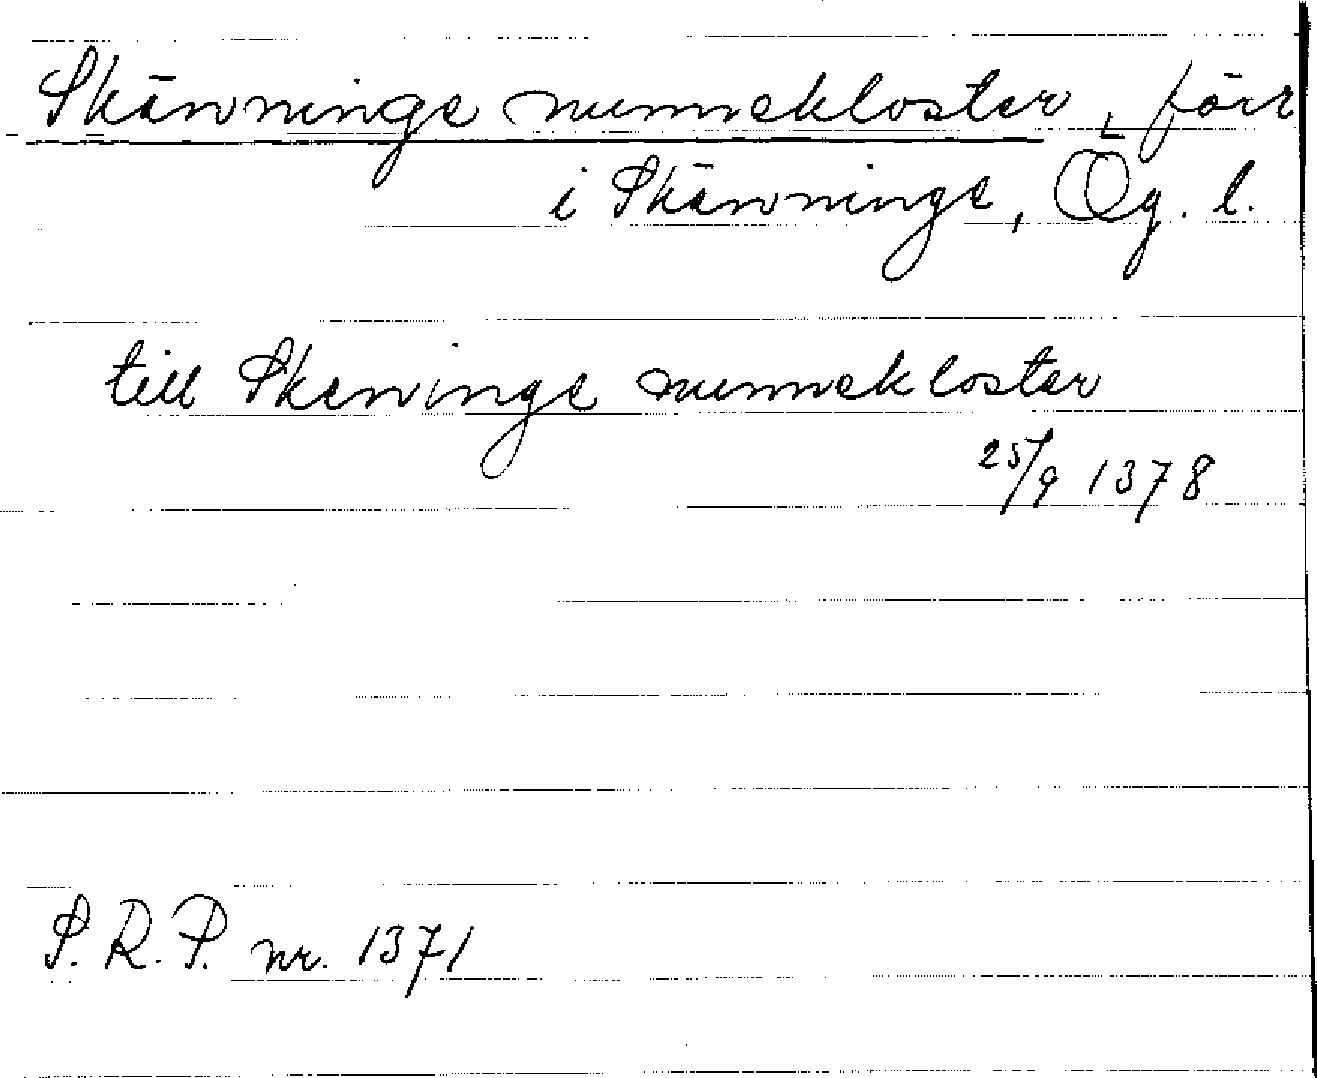 Skänninge nunnekloster, förr
i Skänninge, Ög. l.
till Skeninge nunnekloster
25/9 1378
S. R. P. nr. 1371